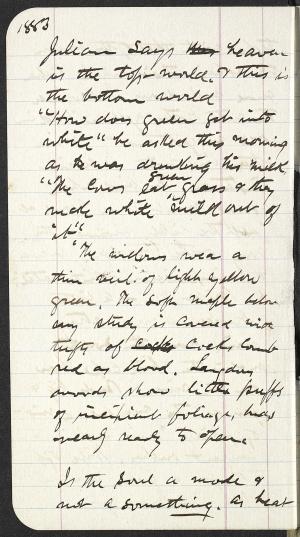 1883
Julian says heaven
is the top-world & this is
the bottom world
"How does green get into
white" he asked this morning
as he was drinking his milk
green
"The Cows eat grass & they
make white milk out of
it"
The willows wear a
thin veil of light yellow
green. The soft maple below
my study is covered with
tufts of Cocks Comb
red as blood.
woods show little puffs
of incipient foliage, buds
nearly ready to open.
Is the Soul a mode &
not a something. as heat